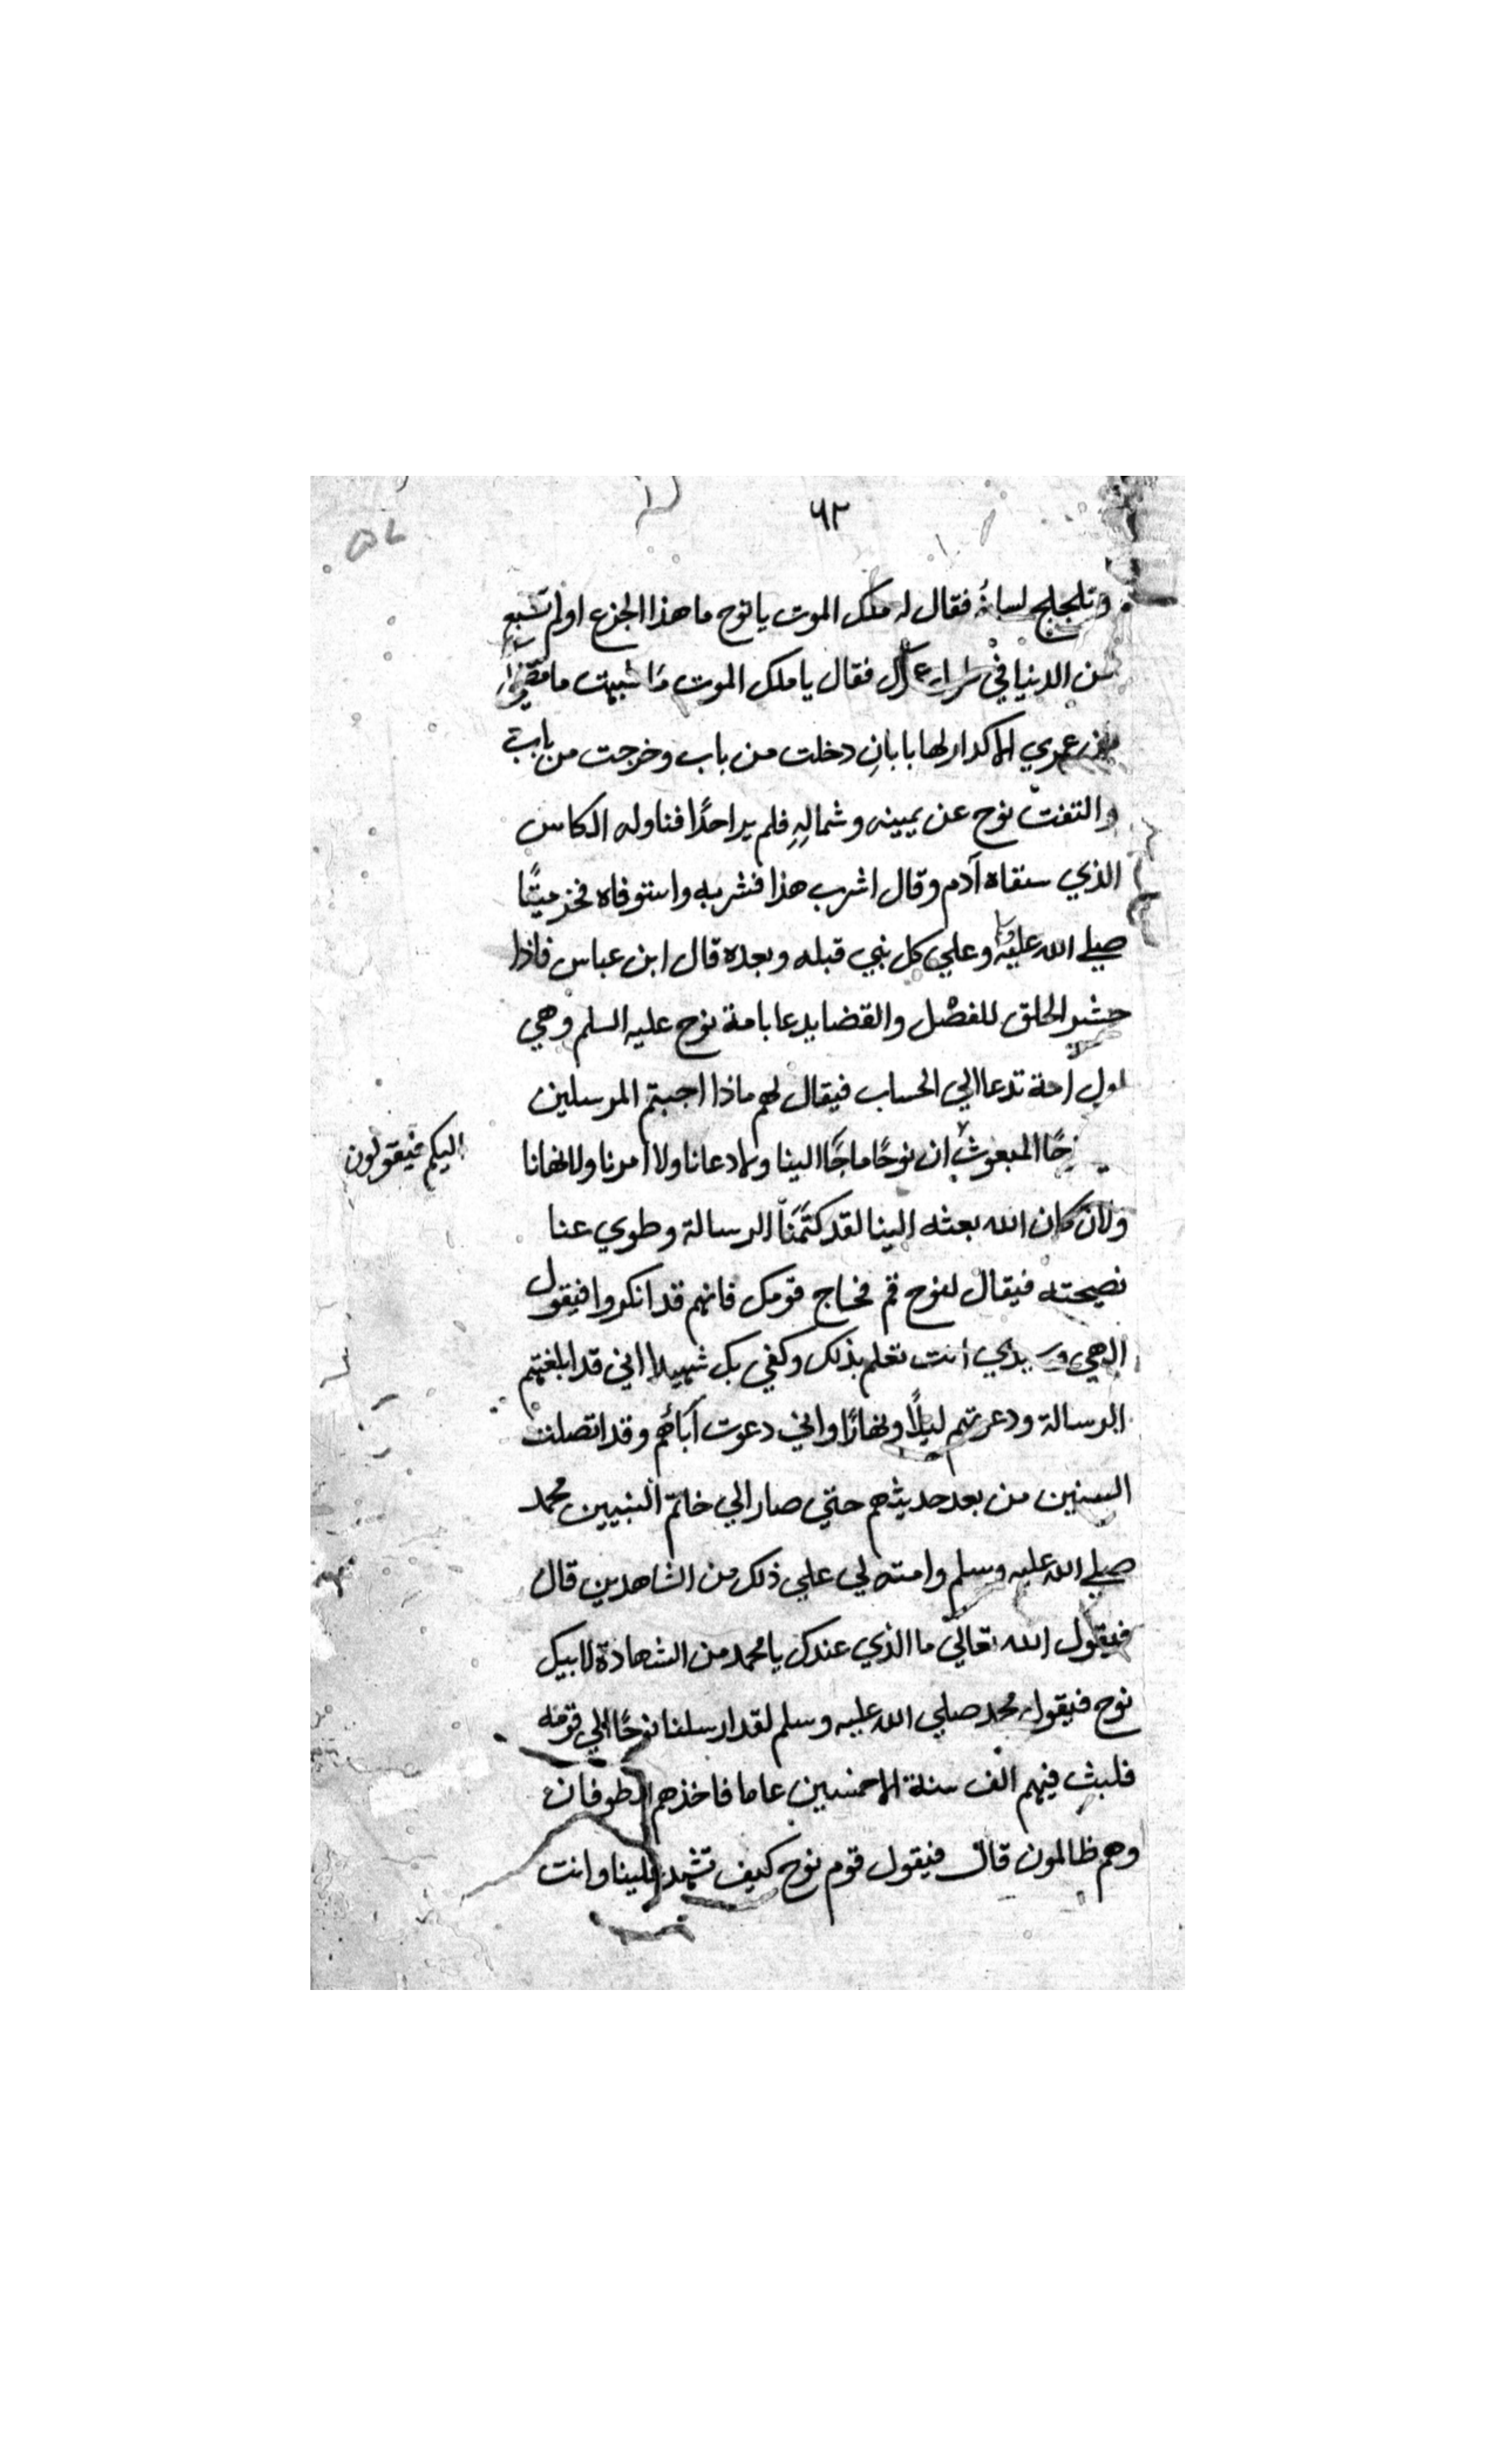 ٦٢
وتلجلج لسانه فقال له ملك الموت يا نوح ما هذا الجزع اولم تشبع
من الدنيا في فقال يا ملك الموت ما شبهت ما مضي
من عمري الا كدار لها بابانِ دخلت من باب وخرجت من باب
والتفت نوح عن يمينه وشمالِهِ فلم ير احدًا فناوله الكاس
الذي سقاه آدم وقال اشرب هذا فشربه واستوفاه فخر ميتًا
صلي الله عليه وعلي كل نبي قبله وبعده قال ابن عباس فاذا
حشر الخلق للفصْل والقضا يدعا بامة نوح عليه السلم وهي
اول امة تدعا الي الحساب فيقال لهم ماذا اجبتم المرسلين
نوحًا المبعوث ان نوحًا ما جًا الينا ولا دعانا ولا امرنا ولا نهانا
اليكم فيقولون
ولان كان الله بعثه الينا لقد كتَمَنَا الرسالة وطوي عنا
نصيحته فيقال لنوح قم فحاج قومك فانهم قد انكروا فيقول
الهي وسيدي انت تعلم بذلك وكفي بك شهيدا اني قد ابلغتهم
الرسالة ودعوتهم ليلًا ونهارًا واني دعوت آبائهم وقد اتصلت
السنين من بعد حديثهم حتي صار الي خاتم النبيين محمد
صلي الله عليه وسلم وامته لي علي ذلك من الشاهدين قال
فيقول الله تعالي ما الذي عندك يا محمد من الشهادة لابيك
نوح فيقول محمد صلي الله عليه وسلم لقد ارسلنا نوحًا الي قومه
فلبث فيهم الف سنة الا خمسين عاما فاخذهم الطوفان
وهم ظالمون قال فيقول قوم نوح كيف تشهد علينا وانت